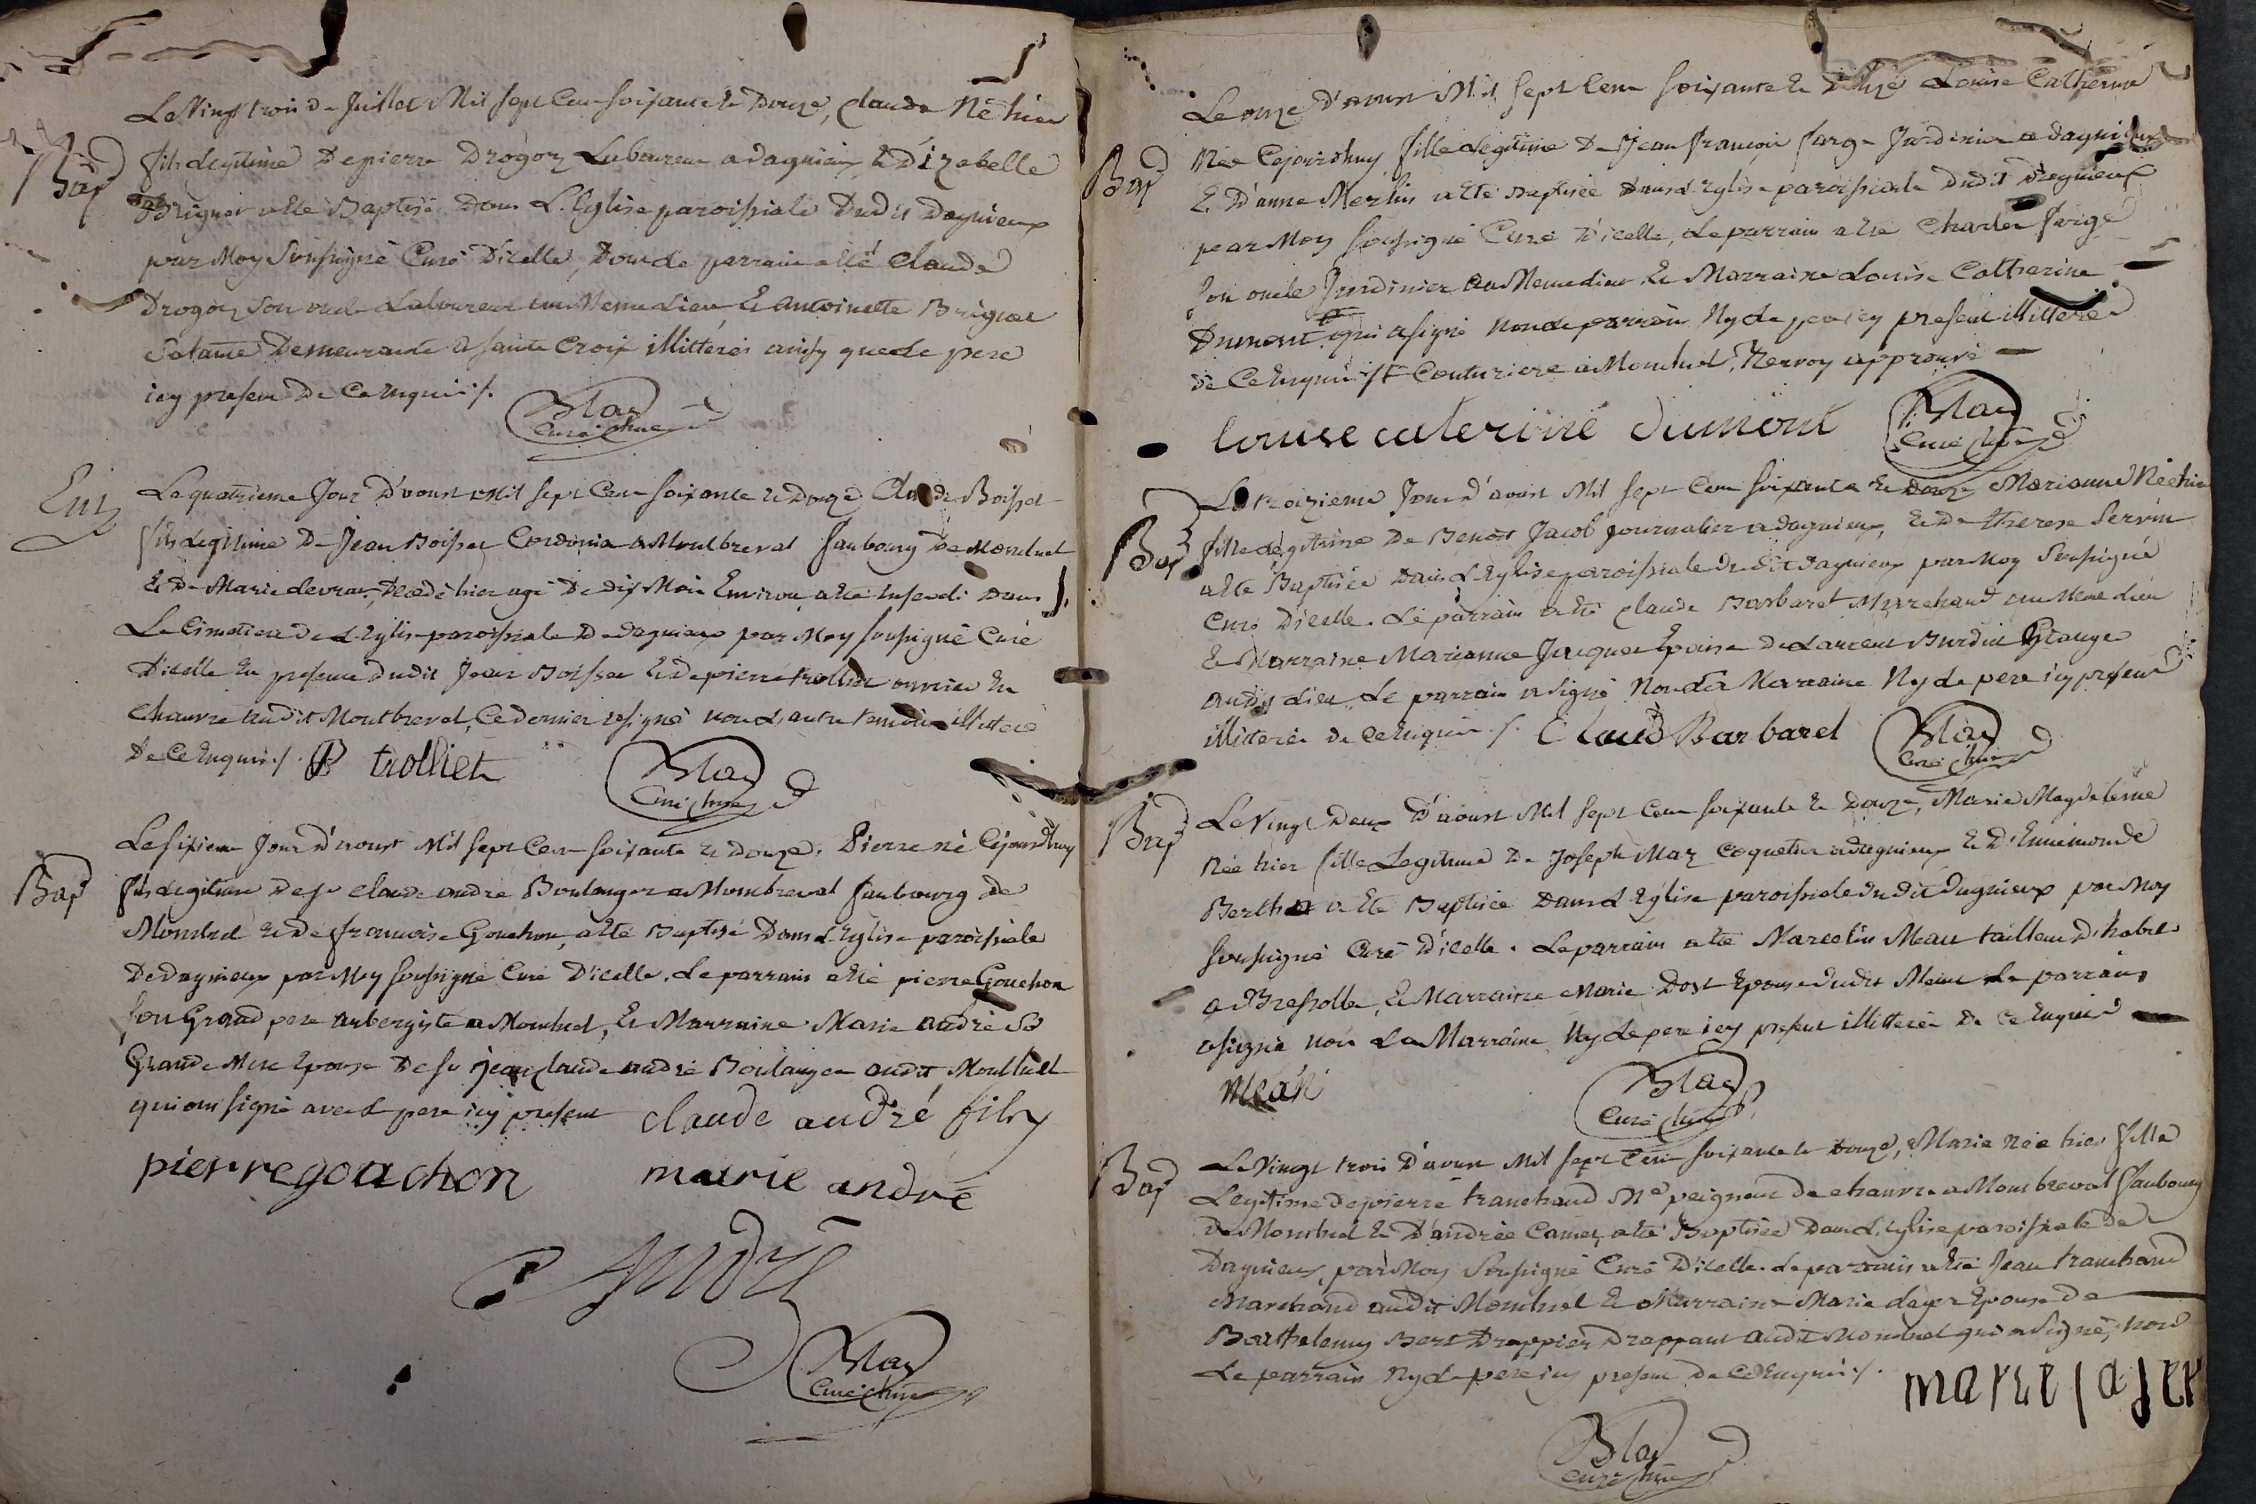 Le Vingt trois de Juillet Mil sept Cent soixante et Douze, Claude Né hier
Bap
fils Legitime De pierre Drogoz Laboureur a dagnieux et D'izabelle
Brignot a été Baptisé Dans L'Eglise paroissiale Dudit Dagnieux
par Moy soussigné Curé D'icelle, Dont Le parrain a été Claude
Drogoz son oncle Laboureur au Meme Lieu Et Antoinette Brignot
Demeurante a sainte Croix illitterés ainsy que Le pere
icy present De Ce Enquis ./.
Blay
Curé
Ent
Le quatrieme Jour D'aoust Mil sept Cent soixante et Douze Claude Boisset
fils Legitime De Jean Boisset Cordonier a Montbreval faubourg De Montluel
Et De Marie Levrat, Decedé hier agé De dix Mois Environ a été Enseveli Dans
Le Cimetiere de L'Eglise paroissiale De dagnieux par Moy soussigné Curé
D'icelle En presence dudit Jean Boisset Et De pierre trolliet ouvrier En
chanvre audit Montbreval, Ce dernier a signé non L'autre temoin illitteré
De Ce Enquis ./. P trolliet
Blay
Curé
Le sixieme Jour D'aoust Mil sept Cent soixante et Douze, Pierre né Cejourdhuy
Bap
fils Legitime De sr Claude andré Boulanger a Montbreval faubourg de
Montluel et De francoise Gouchon, a été Baptisé Dans L'Eglise paroissiale
De Dagnieux par Moy soussigné Curé D'icelle. Le parrain a été pierre Gouchon
son Grand pere aubergiste a Montluel, Et Marraine Marie andré sa
Grande Mere Epouse De sr jean claude andré Boulanger audit Montluel
qui ont signé avec Le pere icy present claude andré fils
pierre gouchon marie andré
C André
Blay
Curé
Le onze D'aoust Mil sept Cent soixante et Douze Louise Catherine
Bap
Née Cejourdhuy fille Legitime De Jean francois farge Jardinier a dagnieux
Et D'anne Merlin a été Baptisée Dans L'Eglise paroissiale Dudit Dagnieux
par Moy soussigné Curé D'icelle, Le parrain a été Charles farge
son oncle Jardinier au Meme Lieu Et Marraine Louise Catherine
Dumont qui a signé non Le parrain Ny Le pere icy present illitterés
de Ce Enquis ./. Couturiere a Montluel, Renvoy approuvé
louise caterine dumont
Blay
Curé
Le treizieme Jour D'aoust Mil sept Cent soixante et Douze Marianne Née hier
Bap
fille Legitime De Benoit Jacob Journalier a dagnieux, Et De therese Servin
a été Baptisée Dans L'Eglise paroissiale dudit dagnieux par Moy soussigné
Curé D'icelle. Le parrain a été Claude Barbaret Marechand au Meme Lieu
Et Marraine Marianne Jacquet Epouse De Laurent Burdin Granger
audit Lieu Le parrain a signé Non La Marraine Ny Le pere icy present
illitterés de Ce Enquis ./. Claud Barbaret
Blay
Curé
Le Vingt Deux D'aoust Mil sept Cent soixante et Douze, Marie Magdeleine
Bap
Née hier fille Legitime De Joseph Maz Coquetier a dagnieux et D'Ennemonde
Berthet a été Baptisée Dans L'Eglise paroissiale du dit Dagnieux par Moy
soussigné Curé D'icelle. Le parrain a été Marcelin Mean tailleur D'habits
a Bressolle, Et Marraine Marie Dost Epouse Dudit Mean Le parrain
a signé non La Marraine Ny Le pere icy present illitterés De Ce Enquis
mean
Blay
Curé
Le Vingt trois D'aoust Mil sept Cent soixante et Douze, Marie Née hier fille
Bap
Legitime De pierre tranchand Me peigneur De chanvre a Montbreval faubourg
De Montluel Et D'andrée Camet, a été Baptisée Dans L'Eglise paroissiale De
Dagnieux, par Moy soussigné Curé D'icelle. Le parrain a été Jean tranchand
Marchand audit Montluel Et Marraine Marie Layer Epouse De
Barthelemy Bert Drappier Drappant audit Montluel qui a signé, non
Le parrain Ny Le pere icy present De Ce Enquis ./.
marie layer
Blay
Curé